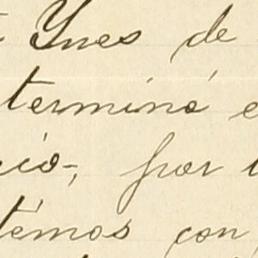 Ynes de
terminé e
cio-, por
témos con